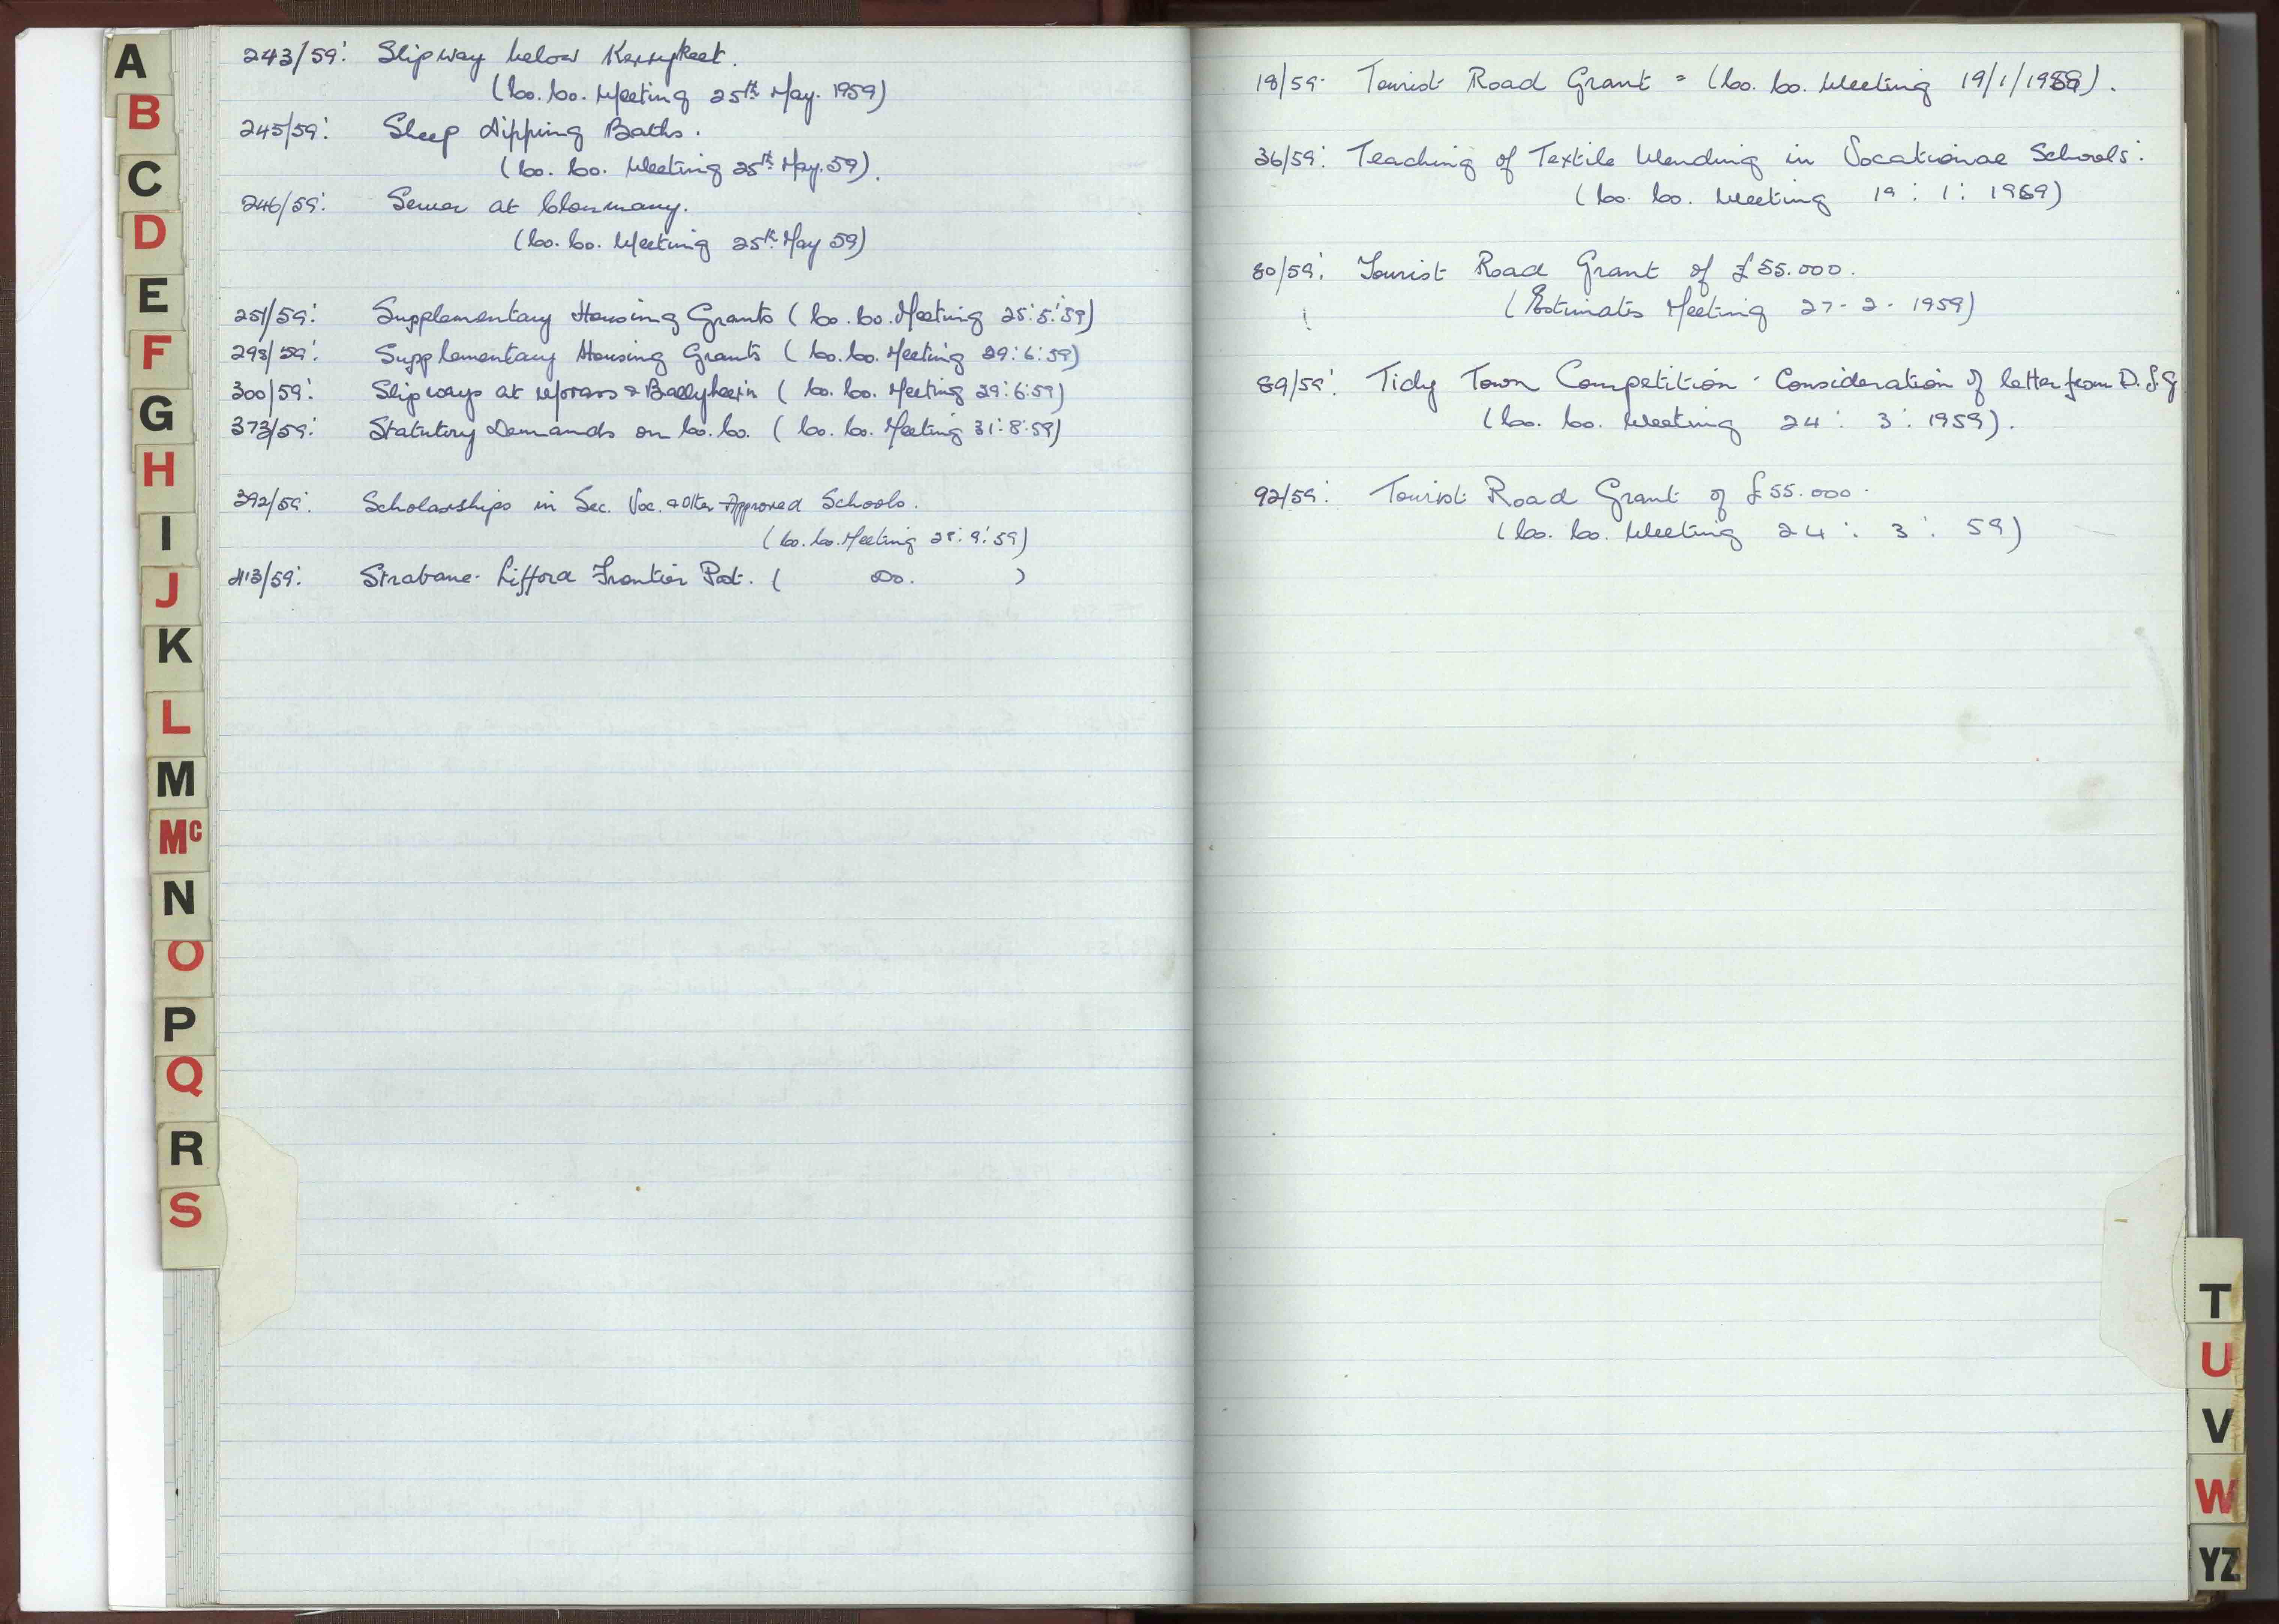 A
B
C
D
E
F
G
H
I
J
K
L
M
Mc
N
O
P
Q
R
S
243/59: Slipway below Kerrykeel.
(Co. Co. Meeting 25th May. 1959)
245/59: Sheep dipping Baths.
(Co. Co. Meeting 25th May. 59).
246/59: Sewer at Clonmany.
(Co. Co. Meeting 25th May 59)
251/59: Supplementary Housing Grants (Co. Co. Meeting 25:5:59)
298/59: Supplementary Housing Grants (Co. Co. Meeting 29:6:59)
300/59: Slipways at & (Co. Co. Meeting 29:6:59)
373/59: Statutory Demands on Co. Co. (Co. Co. Meeting 31:8:59)
392/59: Scholarships in Sec. Voc. & Other Approved Schools.
(Co. Co. Meeting 28:9:59)
413/59: Strabane-Lifford Frontier Post. ( Do. )
18/59- Tourist Road Grant = (Co. Co. Meeting 19/1/1959).
36/59: Teaching of Textile Mending in Vocational Schools:
(Co. Co. Meeting 19:1:1959)
80/59: Tourist Road Grant of £55.000.
(Estimates Meeting 27-2-1959)
89/59: Tidy Town Competition - Consideration of letter from D.L.G
(Co. Co. Meeting 24:3:1959).
92/59: Tourist Road Grant of £55.000.
(Co. Co. Meeting 24:3:59)
T
U
V
W
YZ